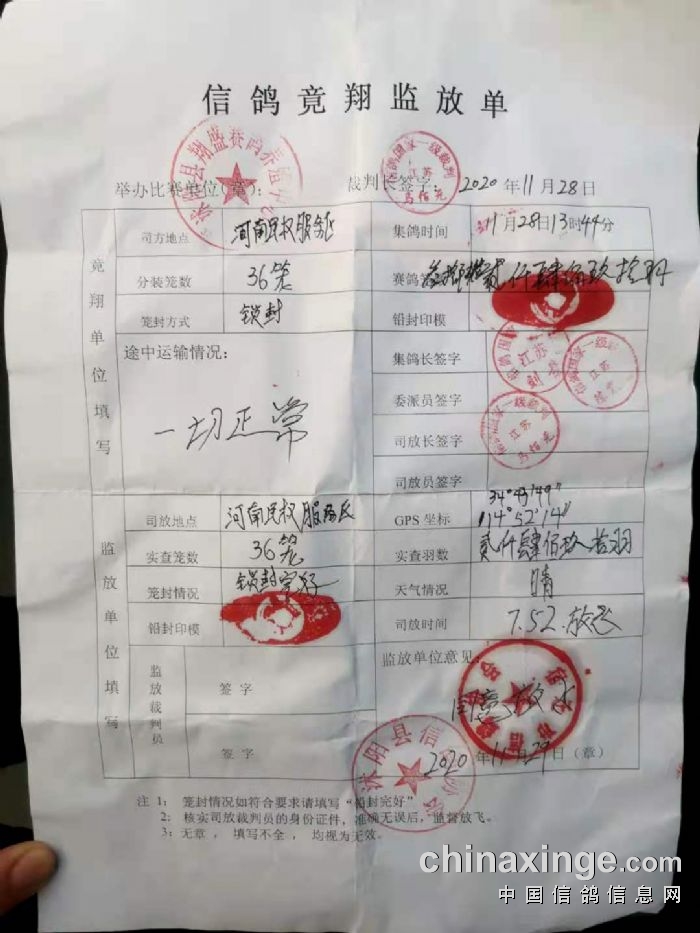 信鸽竞翔监放单
举办比赛单位(章): 裁判长签字: 2020年11月28日
沭阳县翔盛赛鸽养殖
信鸽国家一级裁判
江苏
马恒元
竟翔单位填写
司方地点 河南民权服务区 集鸽时间 11月28日13时44分
分装笼数 36笼 赛鸽 贰仟肆佰玖拾羽
笼封方式 锁封 铅封印模
途中运输情况: 集鸽长签字
江苏
一切正常 委派员签字
江苏
司放长签字
国家一级裁判
江苏
司放员签字
监放单位填写
司放地点 河南民权服务区 GPS 坐标 34°43'49" 114°52'14"
实查笼数 36笼 实查羽数 贰仟肆佰玖拾羽
笼封情况 锁封完好 天气情况 晴
铅封印模 司放时间 7.52.放飞
监放裁判员 签 字 监放单位意见:
签 字 2020年11月29日(章)
沭阳县信鸽协会
注 1: 笼封情况如符合要求请填写“铅封完好”
2: 核实司放裁判员的身份证件，准确无误后，监督放飞。
3:无章 ， 填写不全 ， 均视为无效。
chinaxinge.com
中国信鸽信息网